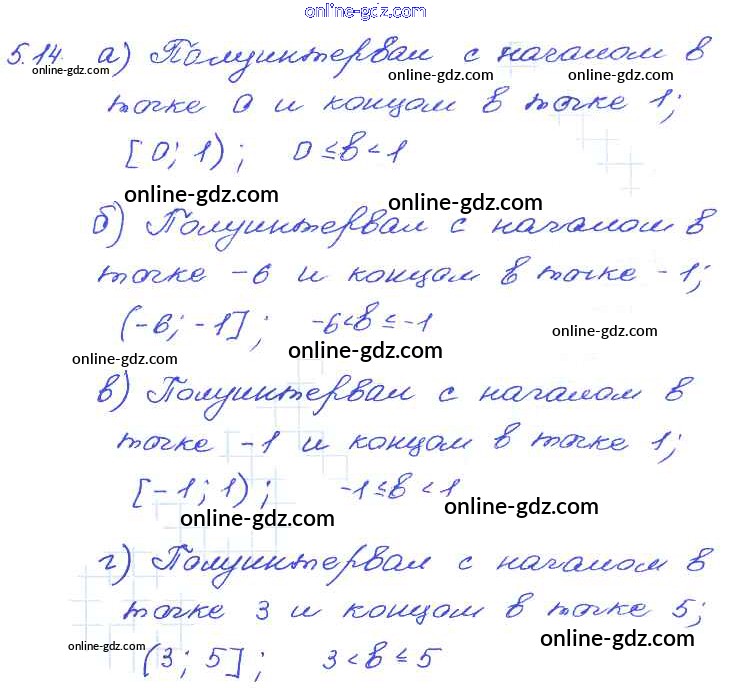 online-gdz.com
5.14. а) Полуинтервал с началом в
online-gdz.com online-gdz.com online-gdz.com
точке 0 и концом в точке 1;
[0; 1); 0 ≤ в < 1
online-gdz.com online-gdz.com
б) Полуинтервал с началом в
точке -6 и концом в точке -1;
(-6; -1]; -6 < в ≤ -1
online-gdz.com
online-gdz.com online-gdz.com
в) Полуинтервал с началом в
точке -1 и концом в точке 1;
[-1; 1); -1 ≤ в < 1
online-gdz.com online-gdz.com
г) Полуинтервал с началом в
точке 3 и концом в точке 5;
online-gdz.com online-gdz.com
(3; 5]; 3 < в ≤ 5